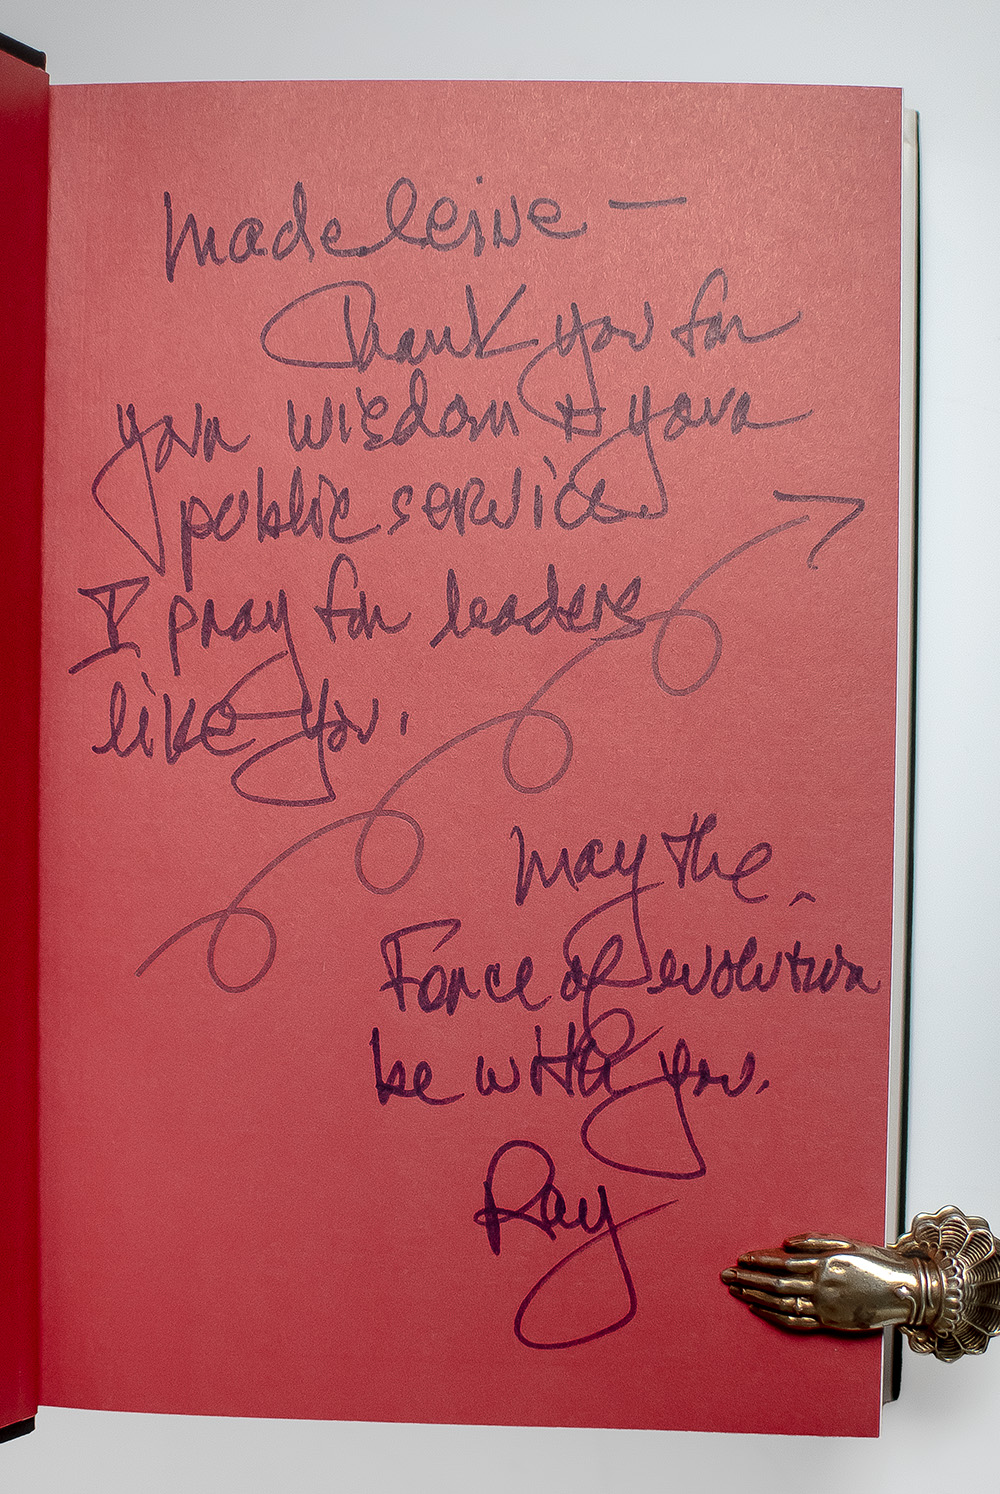 Madeleine —
Thank you for
your wisdom & your
public service
I pray for leaders
like you.
May the
Force of evolution
be with you.
Ray